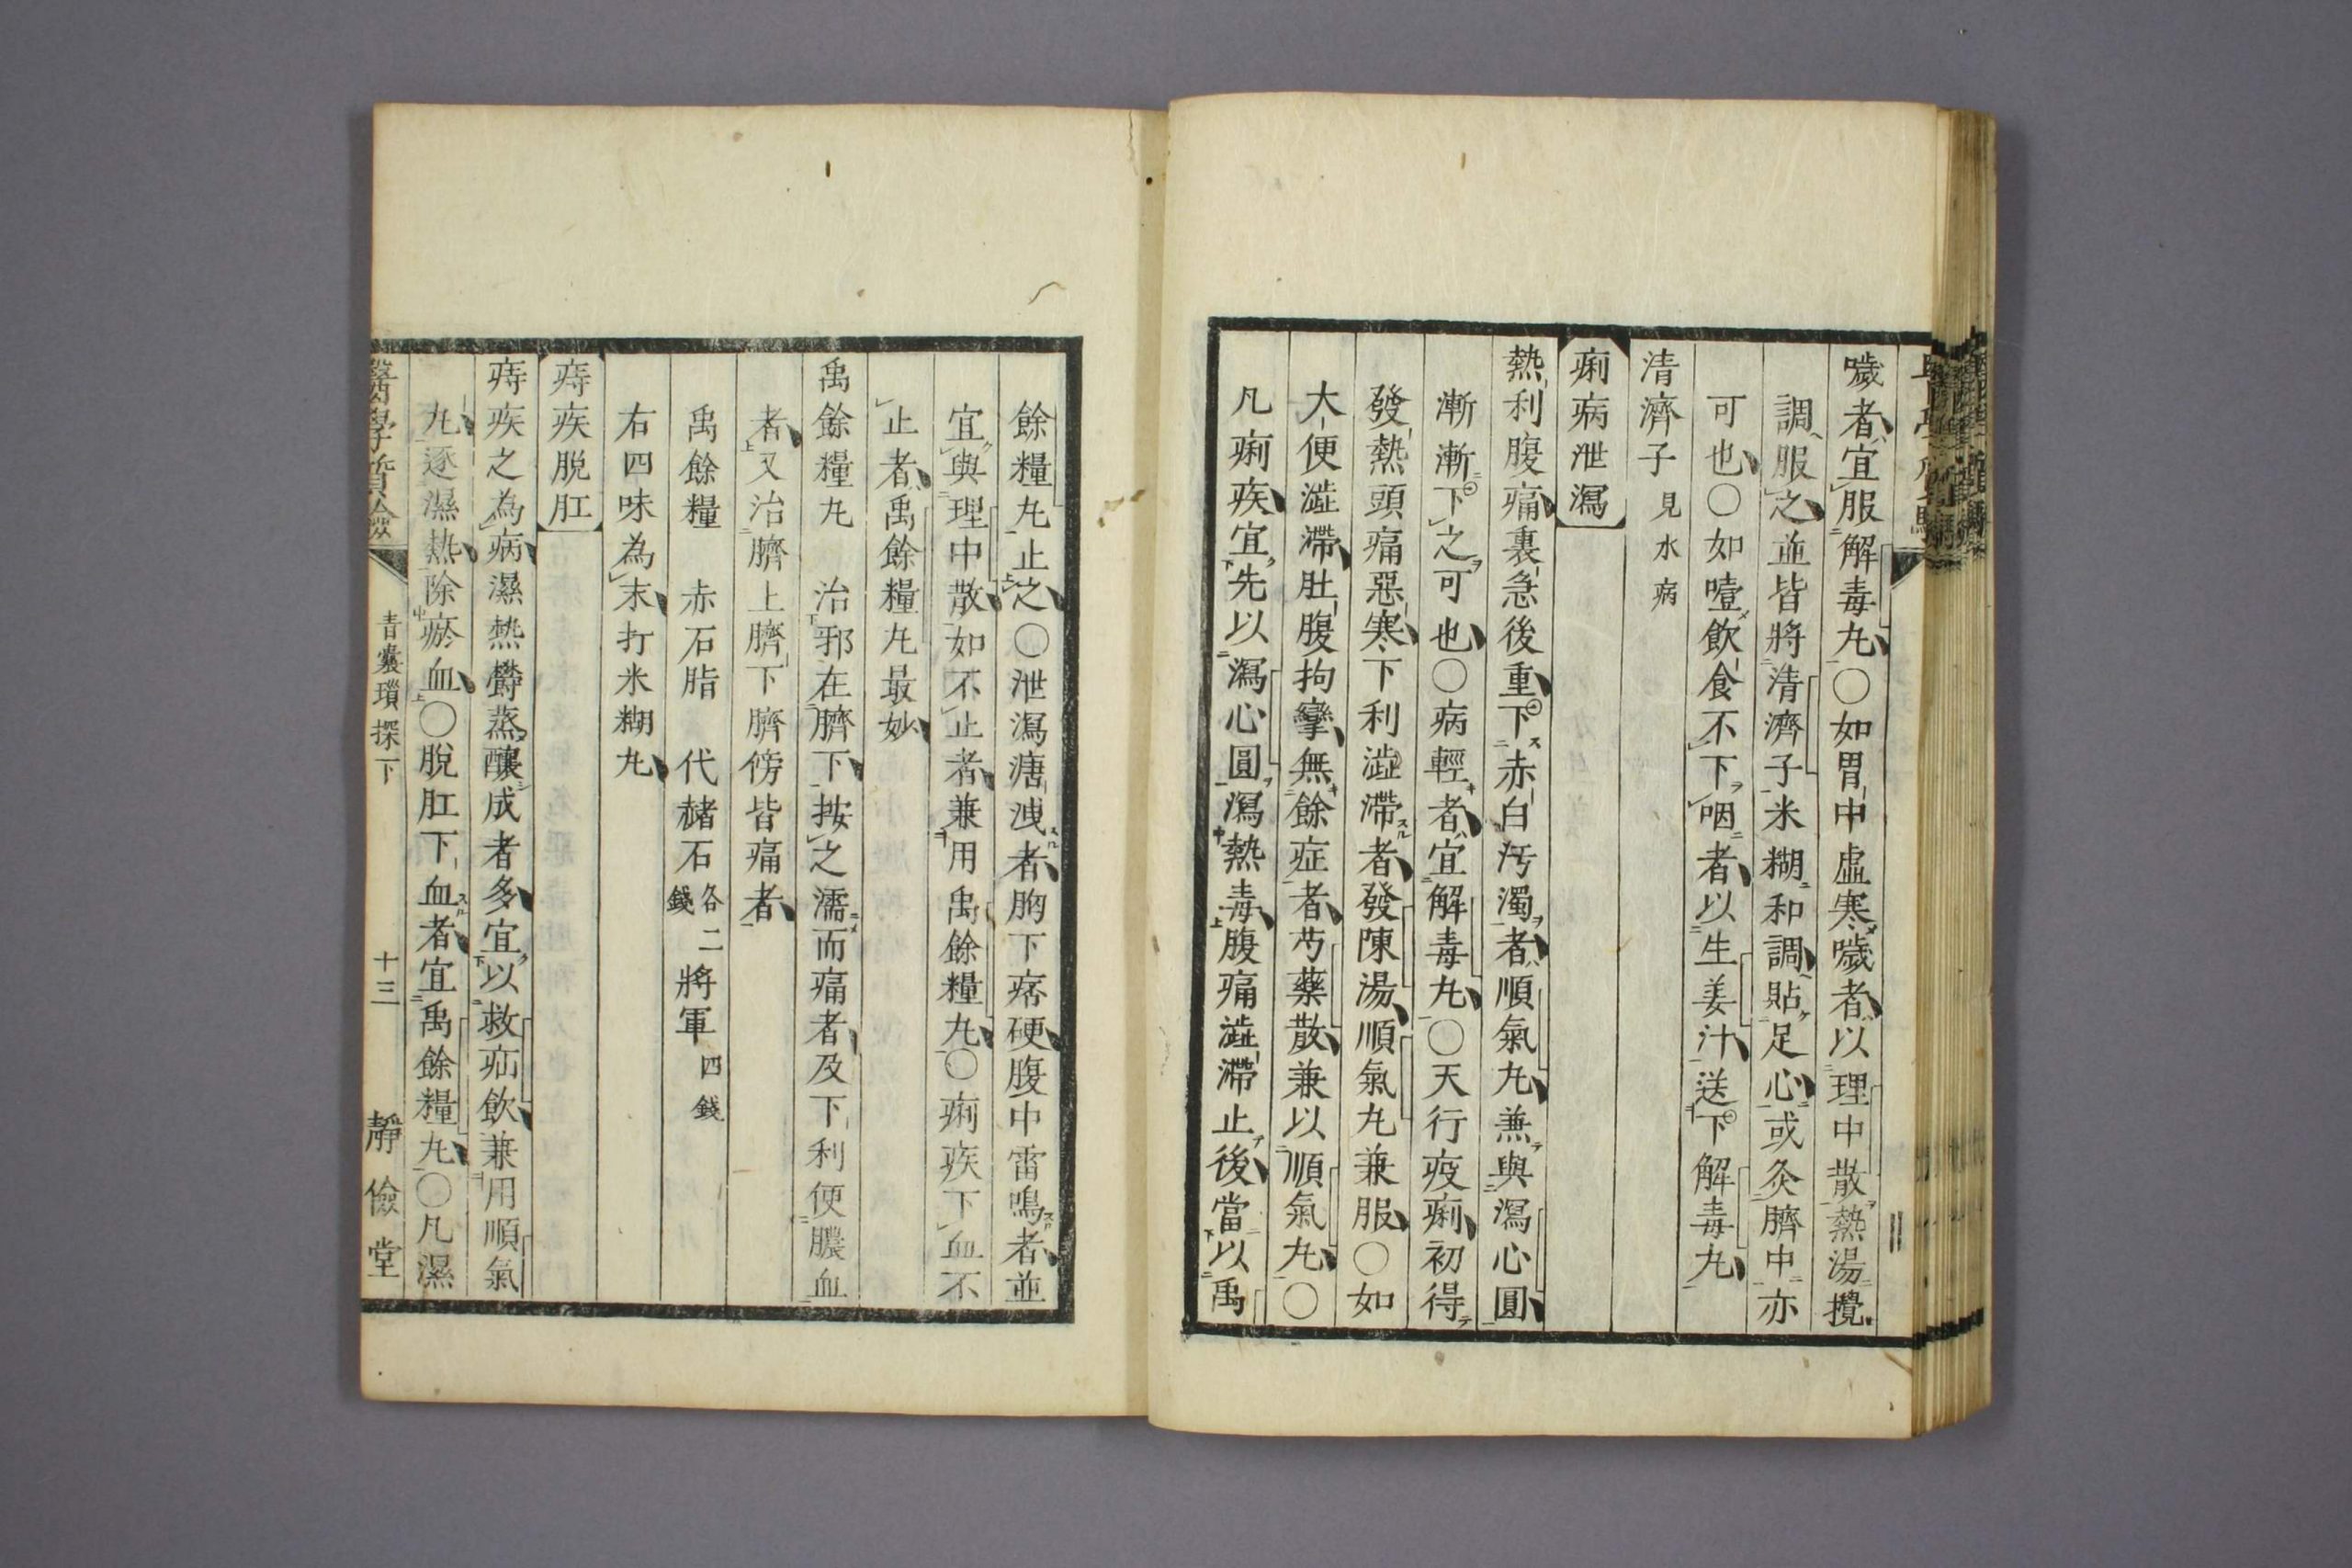 噦者宜服解毒丸〇如胃中虛寒噦者以理中散熱湯攪
調服之並皆將清濟子米糊和調貼足心或灸臍中亦
可也〇如噎飲食不下咽者以生姜汁送下解毒丸
清濟子 見水病
痢病泄瀉
熱利腹痛裏急後重下赤白汚濁者順氣丸兼與瀉心圓
漸漸下之可也〇病輕者宜解毒丸〇天行疫痢初得
發熱頭痛惡寒下利澁滯者發陳湯順氣丸兼服〇如
大便澁滯肚腹拘攣無餘症者芍藥散兼以順氣丸〇
凡痢疾宜先以瀉心圓瀉熱毒腹痛澁滯止後當以禹
餘糧丸止之〇泄瀉溏洩者胸下痞硬腹中雷鳴者並
宜與理中散如不止者兼用禹餘糧丸〇痢疾下血不
止者禹餘糧丸最妙
禹餘糧丸 治邪在臍下按之濡而痛者及下利便膿血
者又治臍上臍下臍傍皆痛者
禹餘糧 赤石脂 代赭石各二錢 將軍四錢
右四味為末打米糊丸
痔疾脱肛
痔疾之為病濕熱欝蒸釀成者多宜以救疝飲兼用順氣
丸逐濕熱除瘀血〇脫肛下血者宜禹餘糧丸〇凡濕
醫學質驗 青囊瑣探下 十三 靜儉堂